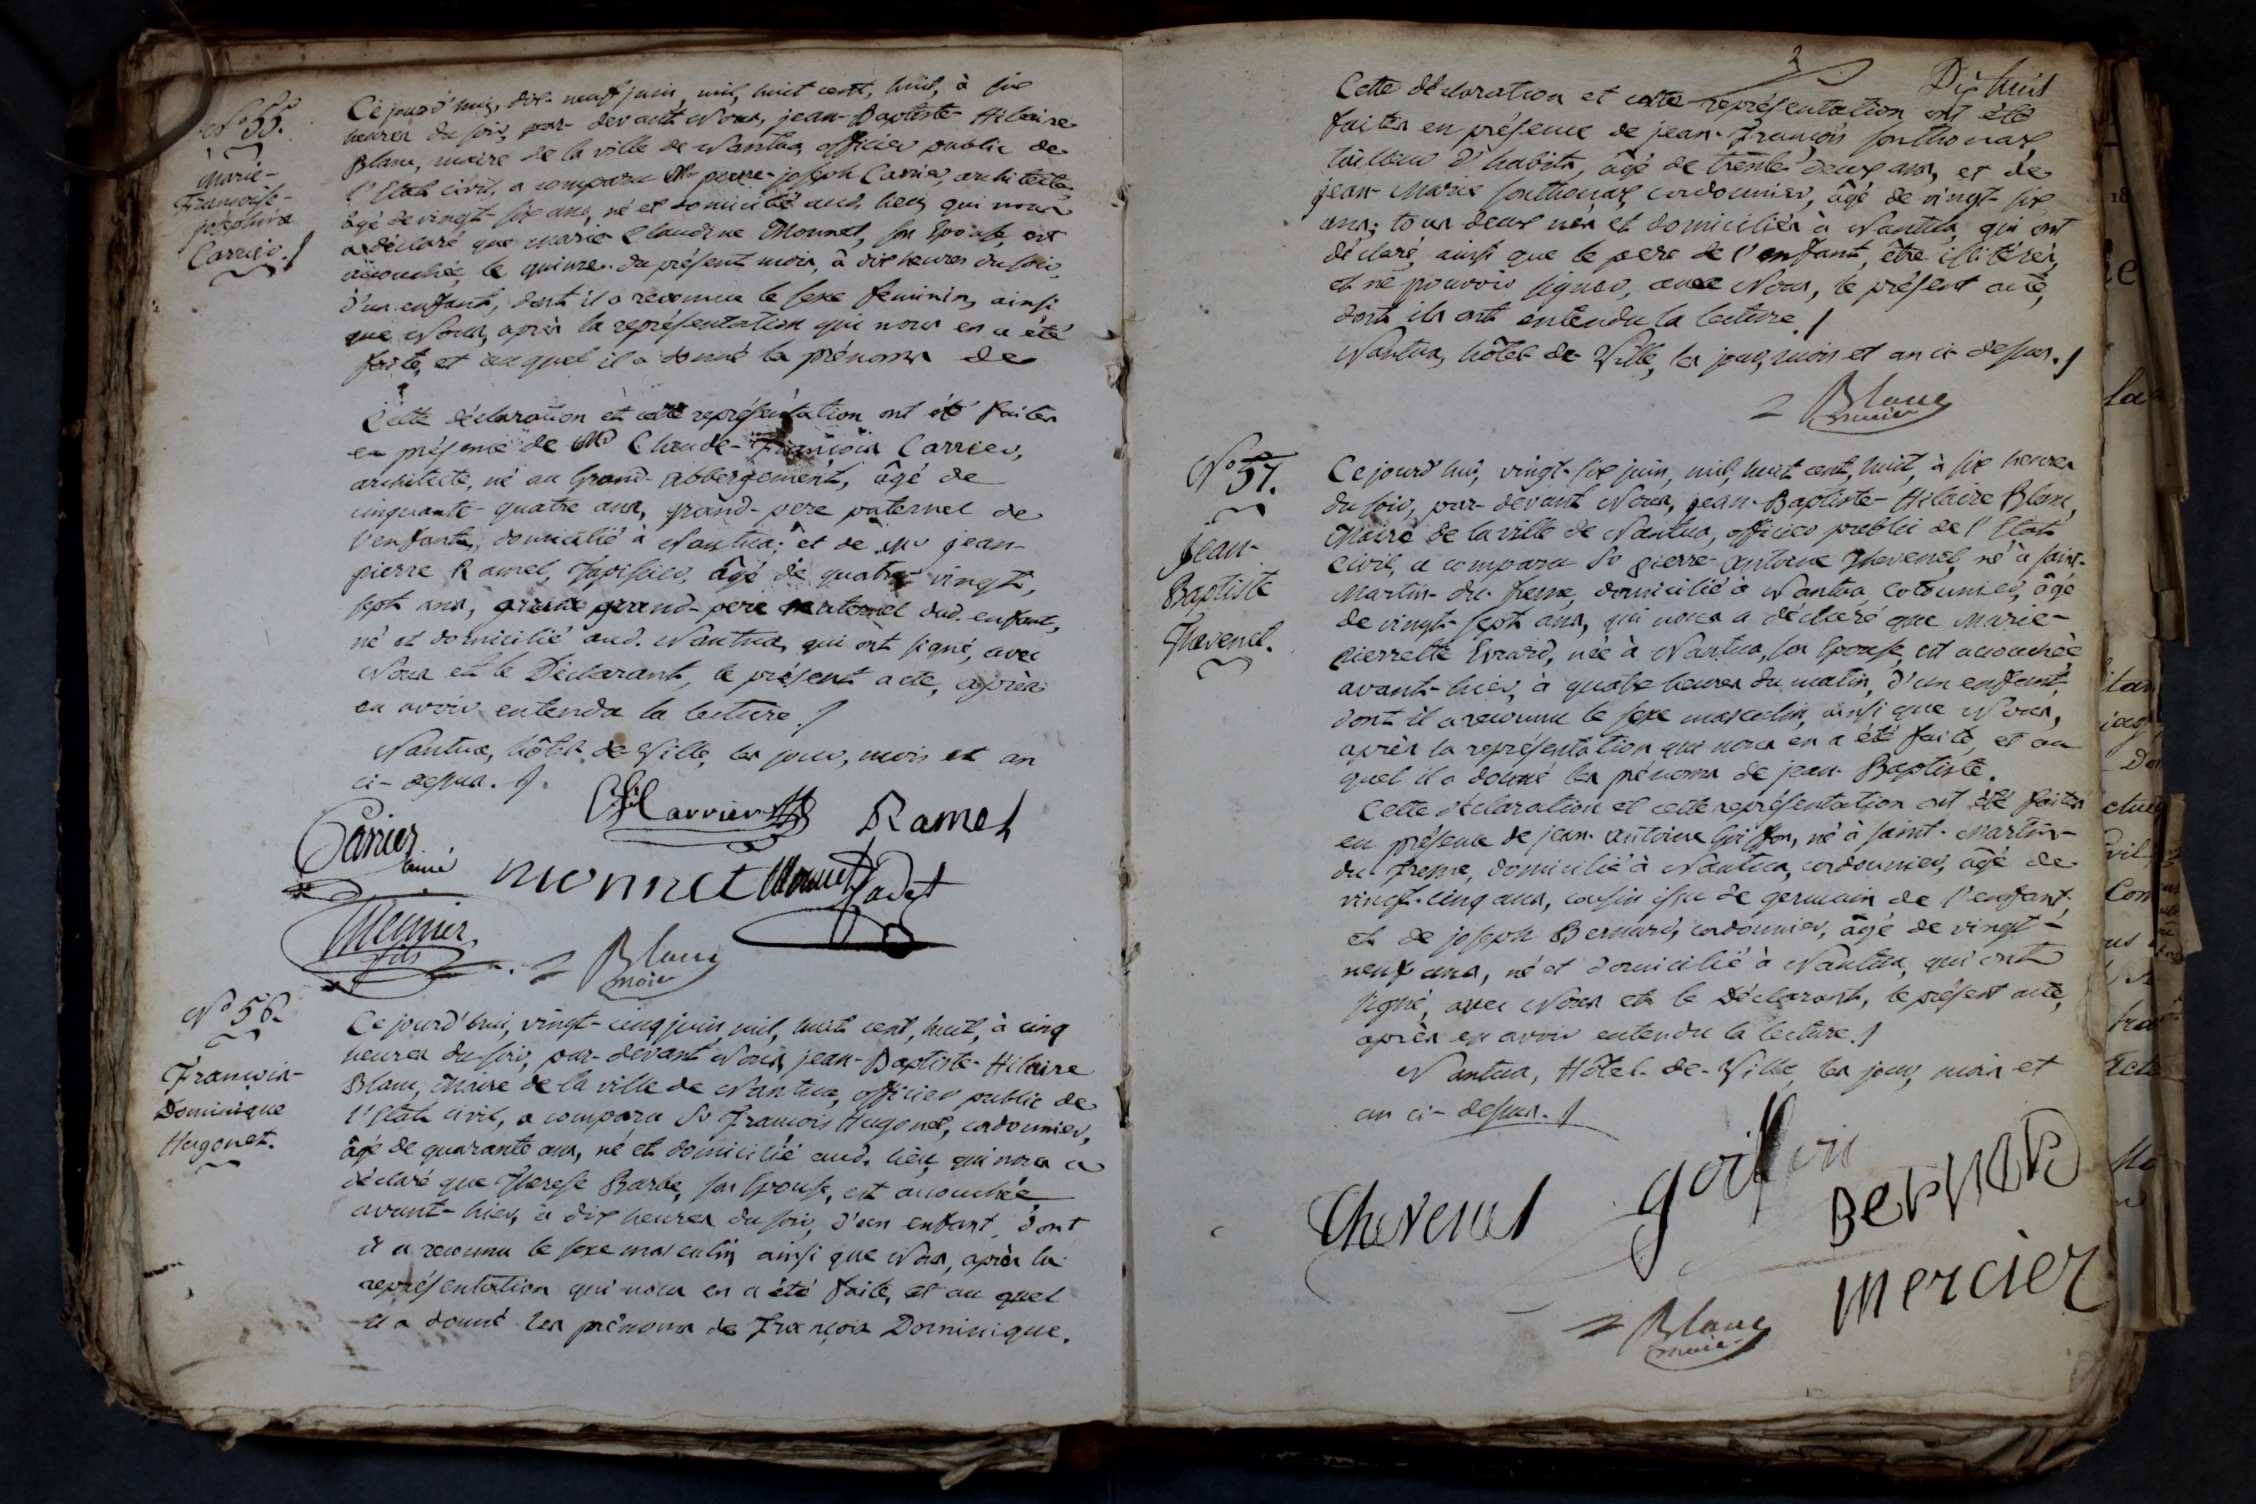 N.o 55.
Marie-
Françoise-
joséphine
Carrier./
Ce jourd'hui, dix-neuf juin, mil, huit cent, huit, à six
heures du soir, par-devant Nous, jean-Baptiste-Hilaire
Blanc, maire de la ville de Nantua, officier public de
l'Etat civil, a comparu Mr pierre-joseph Carrier, architecte,
âgé de vingt-six ans, né et domicilié aud. lieu, qui nous
a déclaré que marie Claudine Monnet, son Epouse, est
accouchée, le quinze du présent mois, à dix heures du soir,
d'un enfant, dont il a reconnu le sexe féminin, ainsi
que Nous, après la représentation qui nous en a été
faite, et auquel il a donné les prénoms de
Cette déclaration et cette représentation ont été faites
en présence de Mr Claude-François Carrier,
architecte, né au Grand-abbergement, âgé de
cinquante-quatre ans, grand-pere paternel de
l'enfant, domicilié à Nantua; et de Mr jean-
pierre Ramel, Tapissier, âgé de quatre-vingt,
sept ans, grand-pere maternel dud. enfant,
né et domicilié aud. Nantua, qui ont signé, avec
Nous et le Déclarant, le présent acte, après
en avoir entendu la lecture./
Nantua, hôtel de Ville, les jour, mois et an
ci-dessus./.
Carrier Ramel
Carrier
ainé monnet Monnet Cadet
Mercier
fils
Blanc
maire
N.o 56.
François-
Dominique
Hugonet.
Ce jourd'hui, vingt-cinq juin, mil, huit cent, huit, à cinq
heures du soir, par-devant Nous, jean-Baptiste-Hilaire
Blanc, Maire de la ville de Nantua, officier public de
l'Etat civil, a comparu Sr François Hugonet, cordonnier,
âgé de quarante ans, né et domicilié aud. lieu, qui nous a
déclaré que Therese Barbe, son Epouse, est accouchée
avant-hier, à dix heures du soir, d'un enfant, dont
il a reconnu le sexe masculin, ainsi que Nous, après la
représentation qui nous en a été faite, et au quel
il a donné les prénoms de François Dominique.
Dix huit
Cette déclaration et cette représentation ont été
faites en présence de jean-François Sonthonax,
tailleur d'habits, âgé de trente deux ans, et de
jean-Marie Sonthonax, cordonnier, âgé de vingt-six
ans; tous deux nés et domiciliés à Nantua, qui ont
déclaré, ainsi que le pere de l'enfant, être illitérés,
et ne pouvoir signer, avec Nous, le présent acte,
dont ils ont entendu la lecture./
Nantua, hôtel de Ville, les jour, mois et an ci-dessus./
Blanc
maire
N.o 57.
Jean-
Baptiste
Thevenet.
Ce jourd'hui, vingt-six juin, mil, huit cent, huit, à six heures
du soir, par-devant Nous, jean-Baptiste-Hilaire Blanc,
Maire de la ville de Nantua, officier public de l'Etat
civil, a comparu Sr pierre-antoine Thevenet, né à saint-
Martin-du-frene, domicilié à Nantua, âgé
de vingt-sept ans, qui nous a déclaré que Marie-
pierrette Evrard, née à Nantua, son Epouse, est accouchée
avant-hier, à quatre heures du matin, d'un enfant,
dont il a reconnu le sexe masculin, ainsi que Nous,
après la représentation qui nous en a été faite, et au
quel il a donné les prénoms de jean-Baptiste.
Cette déclaration et cette représentation ont été faites
en présence de jean-antoine Goiffon, né à saint-Martin-
du frene, domicilié à Nantua, cordonnier, âgé de
vingt-cinq ans, cousin issu de germain de l'enfant,
et de joseph Bernard, cordonnier, âgé de vingt-
neuf ans, né et domicilié à Nantua, qui ont
signé, avec Nous et le Déclarant, le présent acte,
après en avoir entendu la lecture./
Nantua, Hôtel-de-Ville, les jour, mois et
an ci-dessus./
Thevenet goiffon BerNARD
Mercier
Blanc
maire